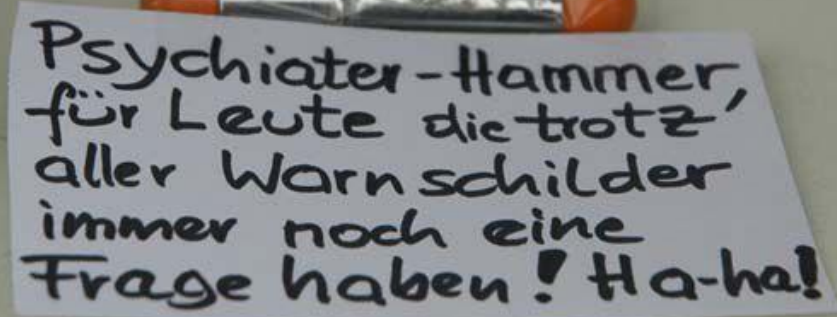 Psychiater-Hammer,
für Leute die trotz
aller Warnschilder
immer noch eine
Frage haben! Ha-ha!